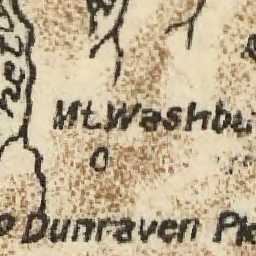 Mt. Washbu
Dunraven Pk